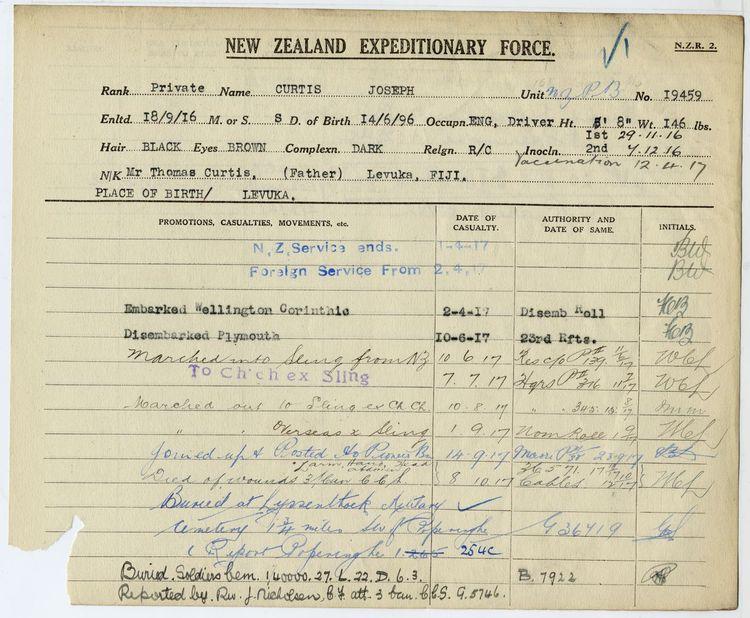 NEW ZEALAND EXPEDITIONARY FORCE. √1 N.Z.R. 2.
Rank Private Name CURTIS JOSEPH Unit N Z P B No. 19459
Enltd. 18/9/16 M. or S. S D. of Birth 14/6/96 Occupn. ENG, Driver Ht. 5' 8" Wt. 146 lbs.
1st 29.11.16
Hair BLACK Eyes BROWN Complexn. DARK Relgn. R/C Inocln. 2nd 7.12.16
Vaccination 12.4.17
N/K Mr Thomas Curtis. (Father) Levuka, FIJI.
PLACE OF BIRTH/ LEVUKA.
PROMOTIONS, CASUALTIES, MOVEMENTS, etc. DATE OF CASUALTY. AUTHORITY AND DATE OF SAME. INITIALS.
N.Z. Service ends. 1-4-17 BW
Foreign Service From 2.4.17 BW
Embarked Wellington Corinthic 2-4-17 Disemb Roll
Disembarked Plymouth 10-6-17 23rd Rfts.
Marched into Sling from NZ 10 6 17
To Ch'ch ex Sling 7.7.17 Hqrs
Marched out to Sling ex Ch Ch. 10.8.17 " 345
" " Overseas x Sling 1 9.17 Nom Roll
Joined up & Posted to Pioneer Bn 14.9.17 23.9.17
Died of wounds 3 Can C C S 8 10.17 Cables
Buried at Lyssenthoek Military
Cemetery 1 3/4 miles SW of Poperinghe G 36419
(Report Poperinghe 254C
Buried. Soldiers Cem. 140000. 27. L. 22. D. 6. 3. B. 7922
Reported by. Rev. J. Nicholsen, C.F. att. 3 Can. C.C.S. G. 5746.